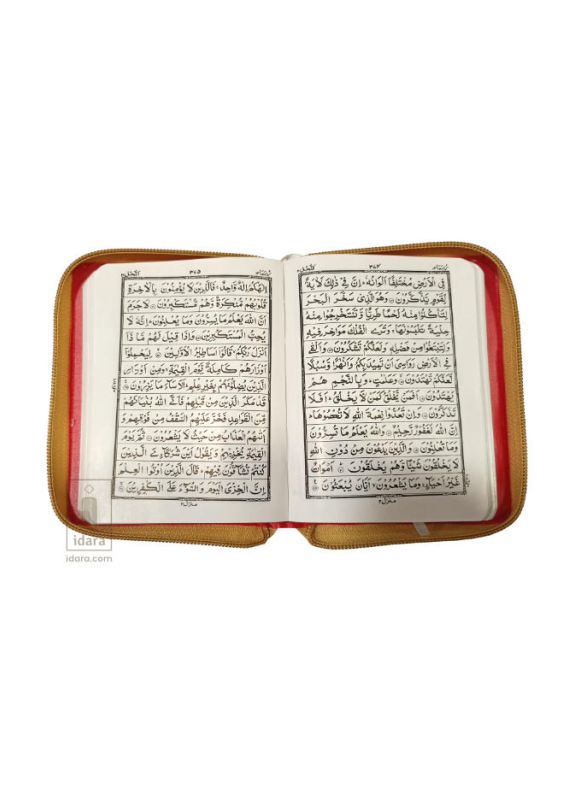 ٣٧٤
فِي الْاَرْضِ مُخْتَلِفًا اَلْوَانُهٗ اِنَّ فِيْ ذٰلِكَ لَاٰيَةً
لِّقَوْمٍ يَّذَّكَّرُوْنَ وَهُوَ الَّذِيْ سَخَّرَ الْبَحْرَ
لِتَاْكُلُوْا مِنْهُ لَحْمًا طَرِيًّا وَّتَسْتَخْرِجُوْا مِنْهُ
حِلْيَةً تَلْبَسُوْنَهَا وَتَرَى الْفُلْكَ مَوَاخِرَ فِيْهِ
وَلِتَبْتَغُوْا مِنْ فَضْلِهٖ وَلَعَلَّكُمْ تَشْكُرُوْنَ وَاَلْقٰى
فِي الْاَرْضِ رَوَاسِيَ اَنْ تَمِيْدَ بِكُمْ وَاَنْهٰرًا وَّسُبُلًا
لَّعَلَّكُمْ تَهْتَدُوْنَ وَعَلٰمٰتٍ وَبِالنَّجْمِ هُمْ
يَهْتَدُوْنَ اَفَمَنْ يَّخْلُقُ كَمَنْ لَّا يَخْلُقُ اَفَلَا
تَذَكَّرُوْنَ وَاِنْ تَعُدُّوْا نِعْمَةَ اللّٰهِ لَا تُحْصُوْهَا
اِنَّ اللّٰهَ لَغَفُوْرٌ رَّحِيْمٌ وَاللّٰهُ يَعْلَمُ مَا تُسِرُّوْنَ
وَمَا تُعْلِنُوْنَ وَالَّذِيْنَ يَدْعُوْنَ مِنْ دُوْنِ اللّٰهِ
لَا يَخْلُقُوْنَ شَيْئًا وَّهُمْ يُخْلَقُوْنَ اَمْوَاتٌ
غَيْرُ اَحْيَاءٍ وَمَا يَشْعُرُوْنَ اَيَّانَ يُبْعَثُوْنَ
٣٧٥
اِلٰهُكُمْ اِلٰهٌ وَّاحِدٌ فَالَّذِيْنَ لَا يُؤْمِنُوْنَ بِالْاٰخِرَةِ
قُلُوْبُهُمْ مُّنْكِرَةٌ وَّهُمْ مُّسْتَكْبِرُوْنَ لَا جَرَمَ
اَنَّ اللّٰهَ يَعْلَمُ مَا يُسِرُّوْنَ وَمَا يُعْلِنُوْنَ اِنَّهٗ لَا
يُحِبُّ الْمُسْتَكْبِرِيْنَ وَاِذَا قِيْلَ لَهُمْ مَّا ذَا
اَنْزَلَ رَبُّكُمْ قَالُوْا اَسَاطِيْرُ الْاَوَّلِيْنَ لِيَحْمِلُوْا
اَوْزَارَهُمْ كَامِلَةً يَّوْمَ الْقِيٰمَةِ وَمِنْ اَوْزَارِ
الَّذِيْنَ يُضِلُّوْنَهُمْ بِغَيْرِ عِلْمٍ اَلَا سَاءَ مَا يَزِرُوْنَ
قَدْ مَكَرَ الَّذِيْنَ مِنْ قَبْلِهِمْ فَاَتَى اللّٰهُ بُنْيَانَهُمْ
مِّنَ الْقَوَاعِدِ فَخَرَّ عَلَيْهِمُ السَّقْفُ مِنْ فَوْقِهِمْ وَ
اَتٰىهُمُ الْعَذَابُ مِنْ حَيْثُ لَا يَشْعُرُوْنَ ثُمَّ يَوْمَ
الْقِيٰمَةِ يُخْزِيْهِمْ وَيَقُوْلُ اَيْنَ شُرَكَاءِيَ الَّذِيْنَ
كُنْتُمْ تُشَاقُّوْنَ فِيْهِمْ قَالَ الَّذِيْنَ اُوْتُوا الْعِلْمَ
اِنَّ الْخِزْيَ الْيَوْمَ وَالسُّوْءَ عَلَى الْكٰفِرِيْنَ
idara
idara.com